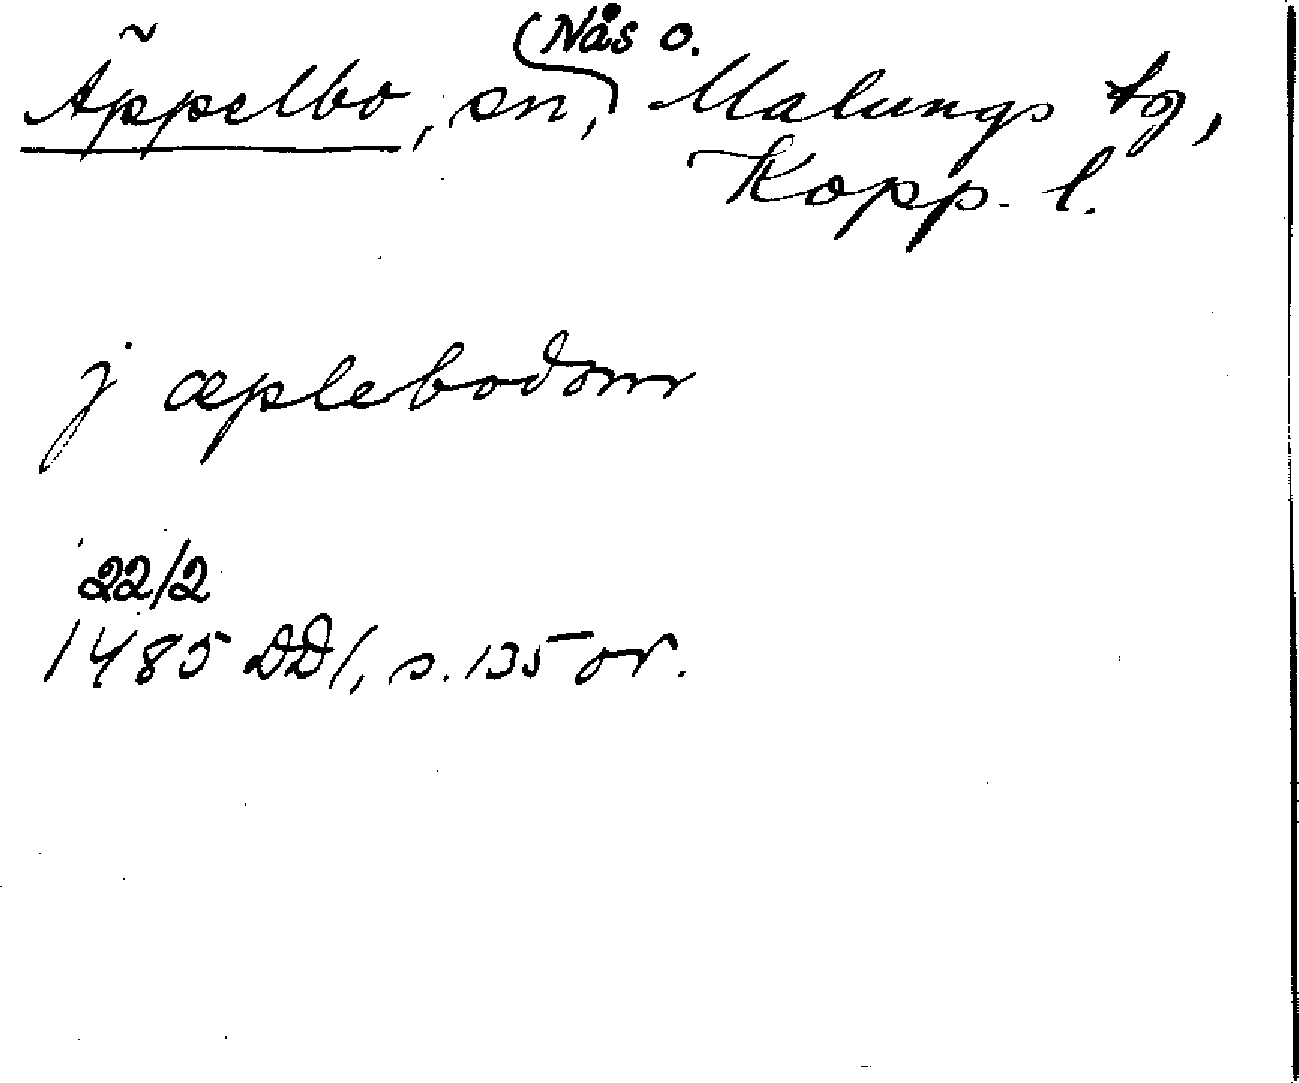 (Nås o.
Äppelbo, sn, Malungs tg,
Kopp. l.
j æplebodom
22/2
1485 DD1, s. 135 or.